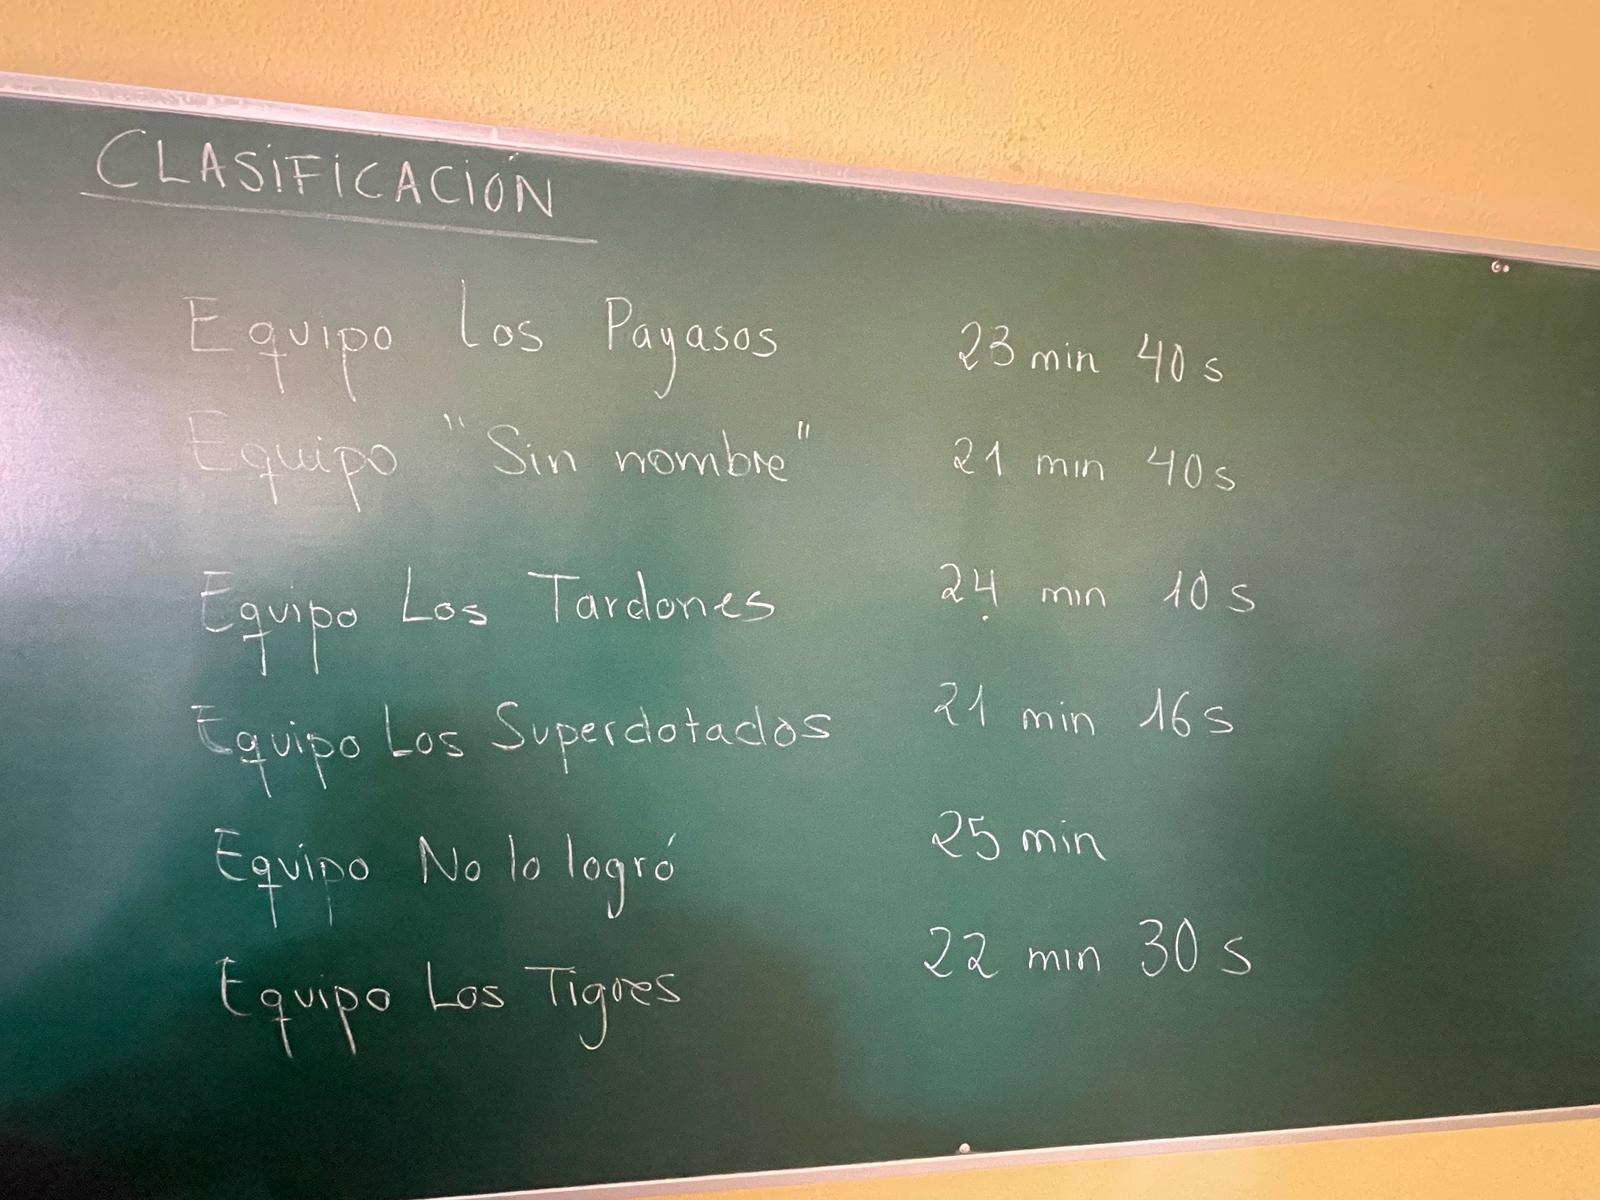 CLASIFICACIÓN
Equipo Los Payasos 23 min 40 s
Equipo "Sin nombre" 21 min 40 s
Equipo Los Tardones 24 min 10 s
Equipo Los Superdotados 21 min 16 s
Equipo No lo logró 25 min
Equipo Los Tigres 22 min 30 s